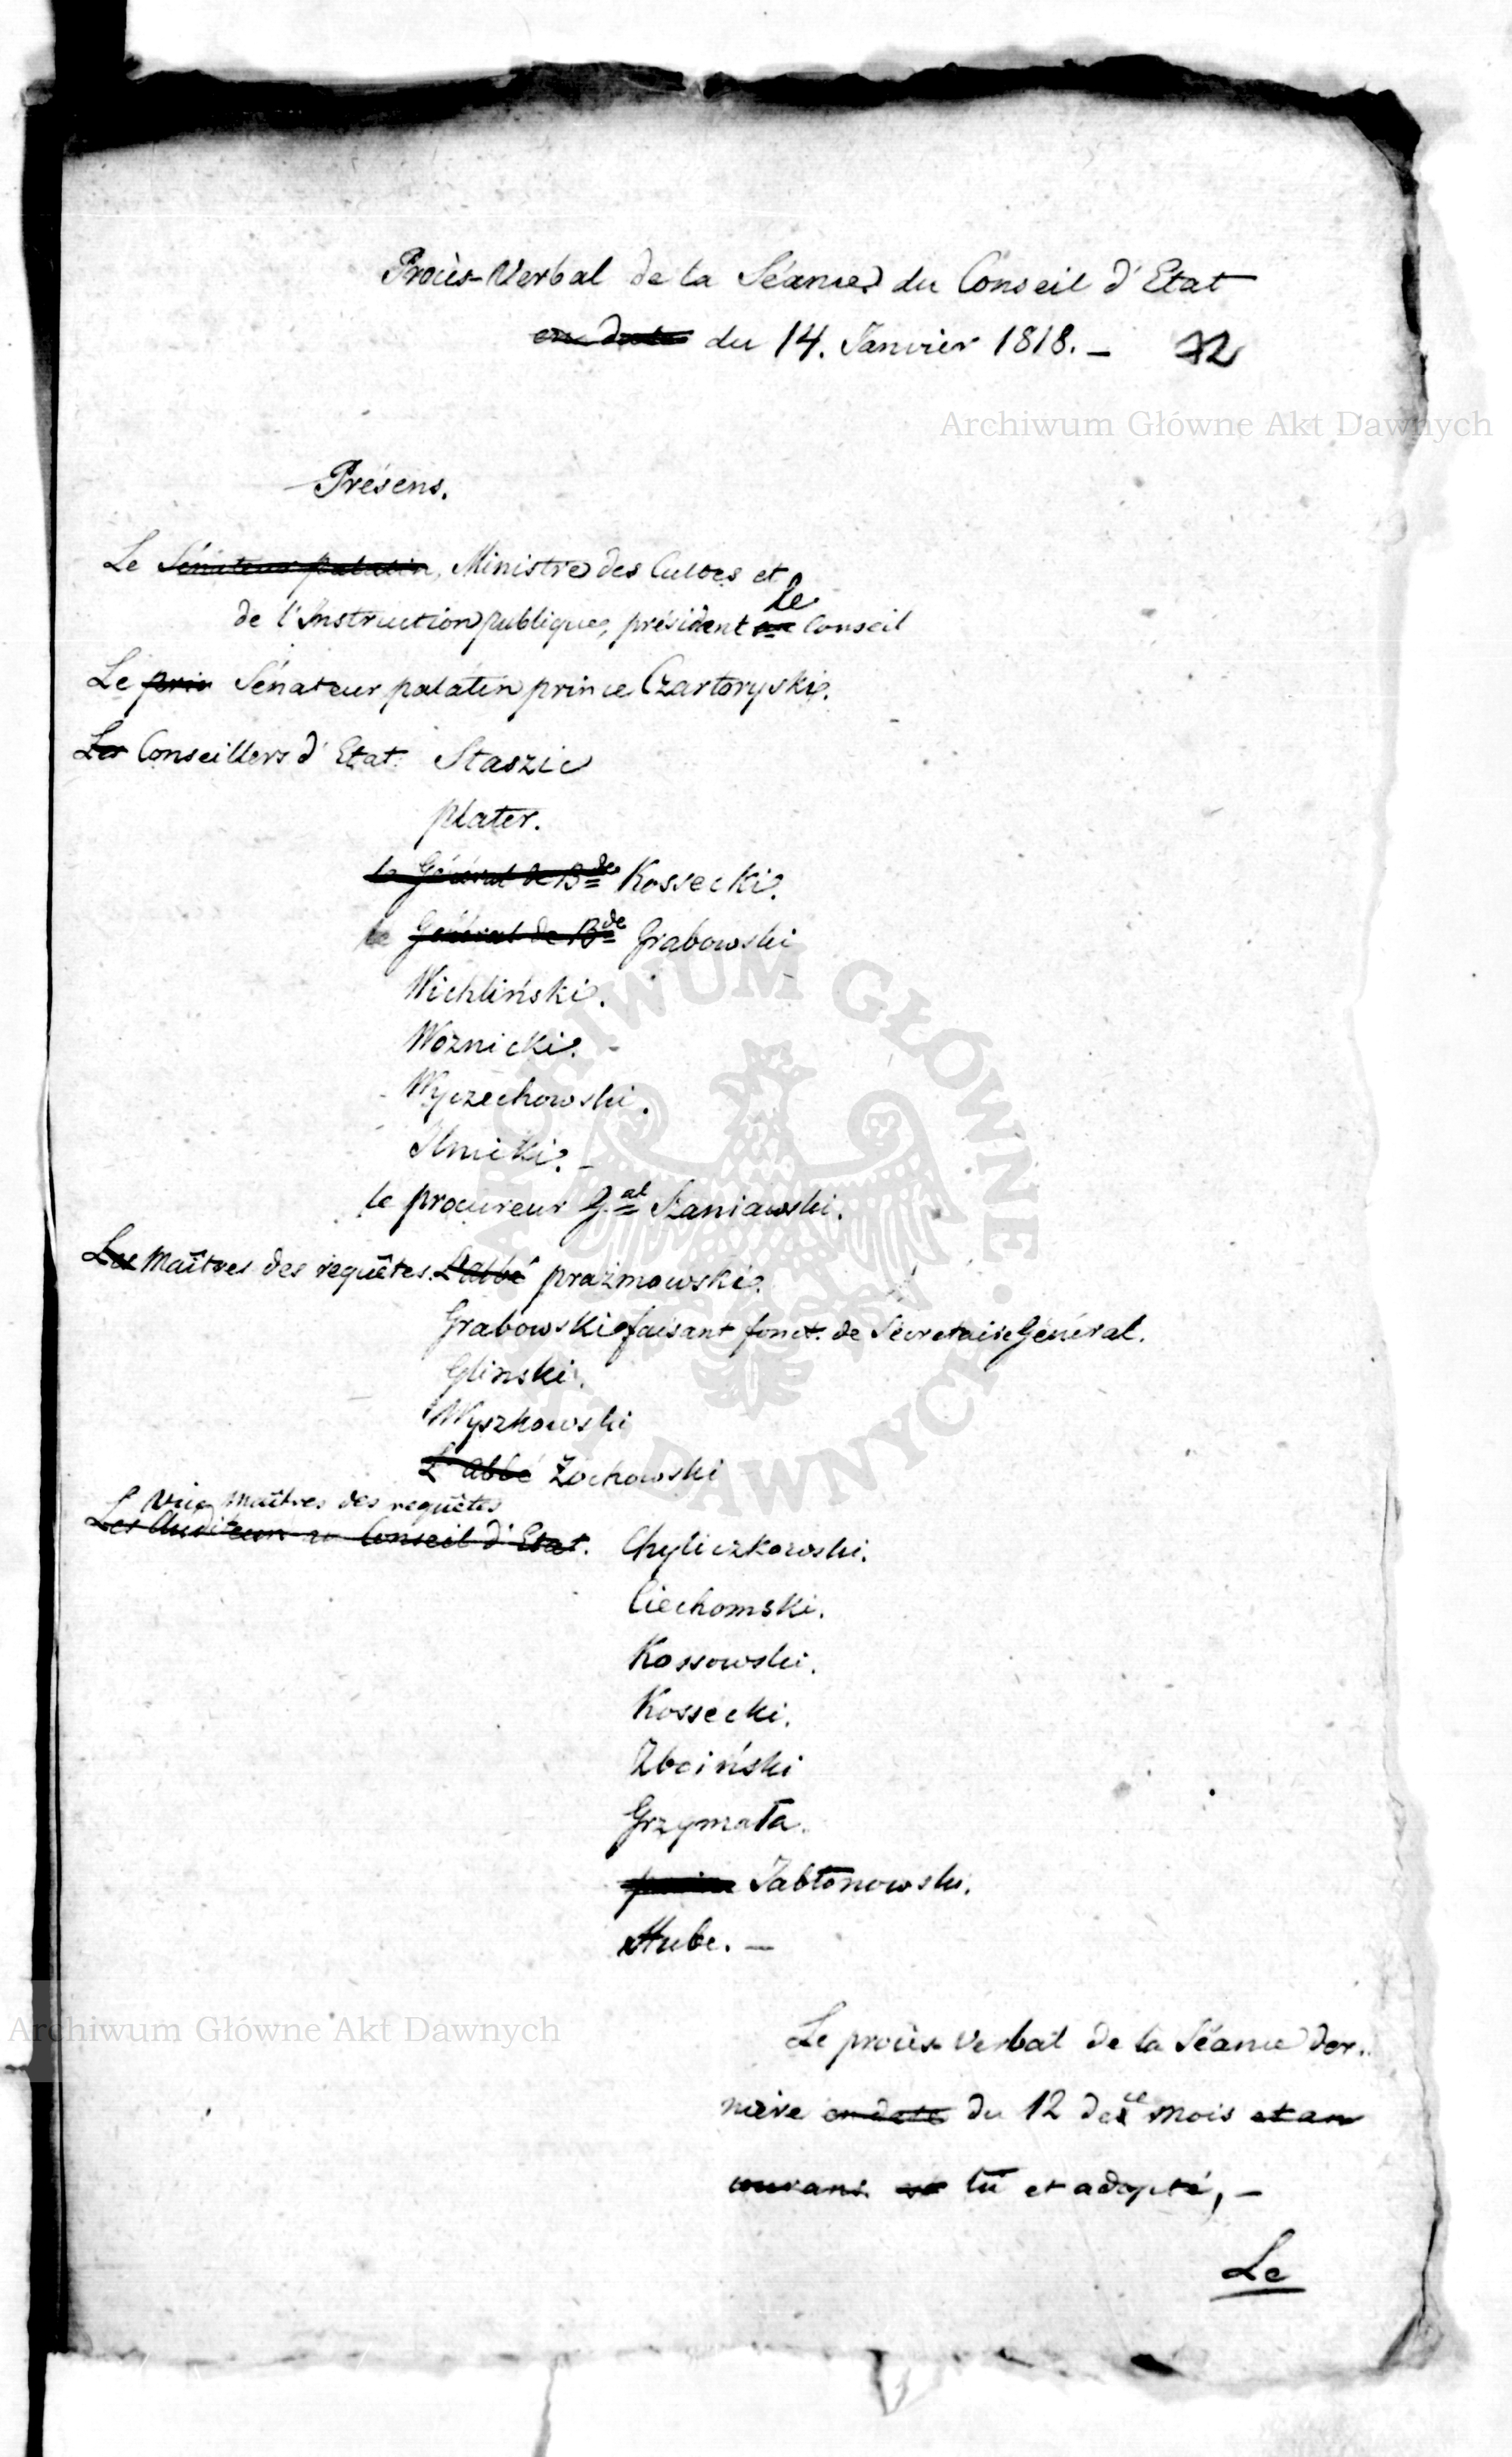 Procès-Verbal de la Séance du Conseil d'Etat
en date du 14. Janvier 1818. — 72
Archiwum Główne Akt Dawnych
Présens.
Le Sénateur palatin, Ministre des Cultes et
de l'Instruction publique, président le Conseil
Le prin Sénateur palatin prince Czartoryski.
Les Conseillers d'Etat. Staszic
plater.
le Général de Bde Kossecki.
le Général de Bde Grabowski
Wichliński.
Woznicki.
Wyczechowski.
Ilnicki. —
le procureur Gal Szaniawski.
Les Maîtres des requêtes. L'abbé prażmowski.
Grabowski faisant fonct. de Sécretaire Général.
Glinski.
Wyszkowski
L'abbé Żochowski
Vice maîtres des requêtes
Les Auditeurs au Conseil d'Etat. Chyliczkowski.
Ciechomski.
Kossowski.
Kossecki.
Zboiński
Grzymała.
prince Jabłonowski.
Hube. —
Archiwum Główne Akt Dawnych
Le procès-verbal de la Séance der-
nière en date du 12 de ce mois et an
courant est lû et adopté, —
Le
ARCHIWUM GŁÓWNE AKT DAWNYCH